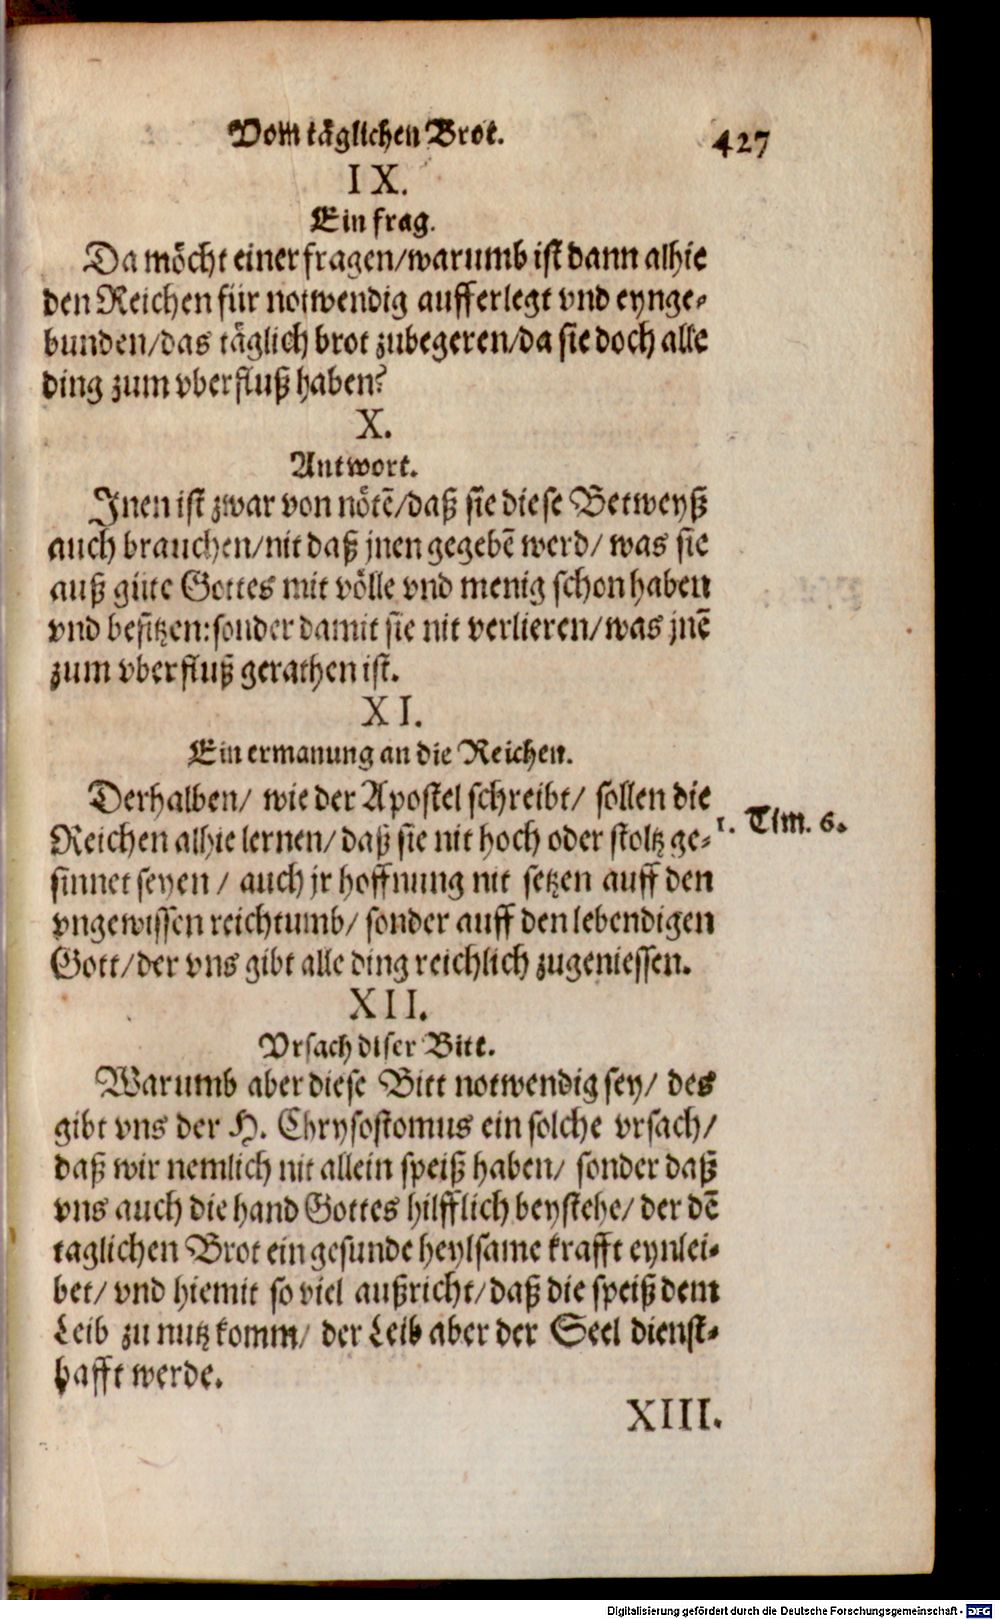 Vom täglichen Brot. 427
IX.
Ein frag.
Da möcht einer fragen/warumb ist dann alhie
den Reichen für notwendig aufferlegt vnd eynge-
bunden/das täglich brot zubegeren/da sie doch alle
ding zum vberfluß haben?
X.
Antwort.
Jnen ist zwar von nötē/daß sie diese Betweyß
auch brauchen/nit daß jnen gegebē werd/ was sie
auß güte Gottes mit völle vnd menig schon haben
vnd besitzen: sonder damit sie nit verlieren/was jnē
zum vberfluß gerathen ist.
XI.
Ein ermanung an die Reichen.
Derhalben/ wie der Apostel schreibt/ sollen die
Reichen alhie lernen/ daß sie nit hoch oder stoltz ge-
1. Tim. 6.
sinnet seyen / auch jr hoffnung nit setzen auff den
vngewissen reichtumb/ sonder auff den lebendigen
Gott/der vns gibt alle ding reichlich zugeniessen.
XII.
Vrsach diser Bitt.
Warumb aber diese Bitt notwendig sey/ des
gibt vns der H. Chrysostomus ein solche vrsach/
daß wir nemlich nit allein speiß haben/ sonder daß
vns auch die hand Gottes hilfflich beystehe/ der dē
taglichen Brot ein gesunde heylsame krafft eynlei-
bet/ vnd hiemit so viel außricht/daß die speiß dem
Leib zu nutz komm/ der Leib aber der Seel dienst-
hafft werde.
XIII.
Digitalisierung gefördert durch die Deutsche Forschungsgemeinschaft - DFG